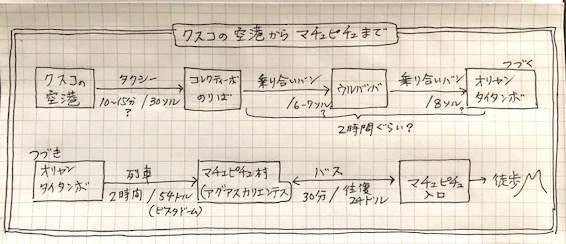 クスコの空港から マチュピチュまで
つづく
クスコの
空港
タクシー
10~15分/30ソル
?
コレクティーボ
のりば
乗り合いバン
/6-7ソル
?
ウルバンバ
乗り合いバン
/8ソル
?
オリャン
タイタンボ
2時間ぐらい?
つづき
オリャン
タイタンボ
列車
2時間/54ドル
(ビスタドーム)
マチュピチュ村
(アグアスカリエンテス)
バス
30分/往復
24ドル
マチュピチュ
入口
徒歩